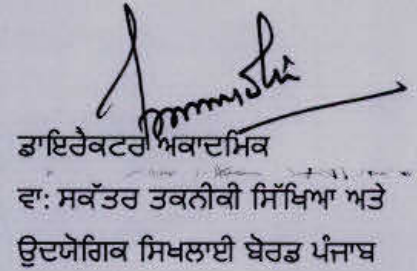 ਡਾਇਰੈਕਟਰ ਅਕਾਦਮਿਕ
ਵਾ: ਸਕੱਤਰ ਤਕਨੀਕੀ ਸਿੱਖਿਆ ਅਤੇ
ਉਦਯੋਗਿਕ ਸਿਖਲਾਈ ਬੋਰਡ ਪੰਜਾਬ